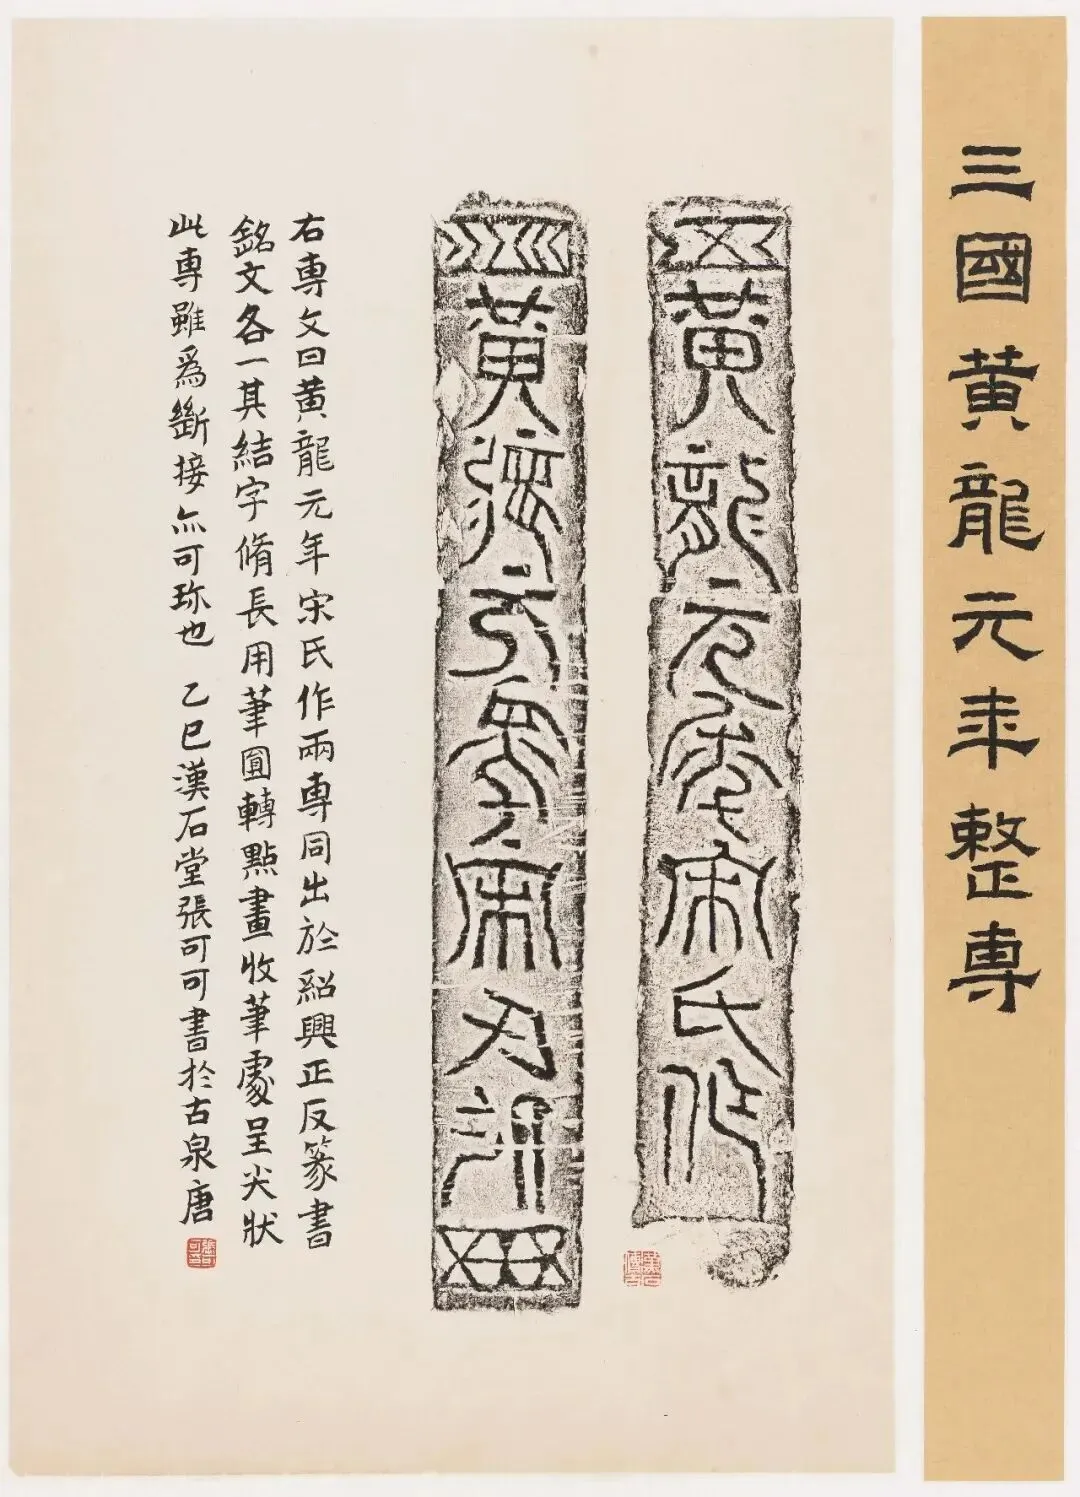 三國黄龍元年整專
黄龍元年宋氏作
黄龍元年宋氏作
右專文曰黄龍元年宋氏作兩專同出於紹興正反篆書
銘文各一其結字脩長用筆圓轉點畫收筆處呈尖狀
此專雖爲斷接亦可珍也 乙巳漢石堂張可可書於古泉唐